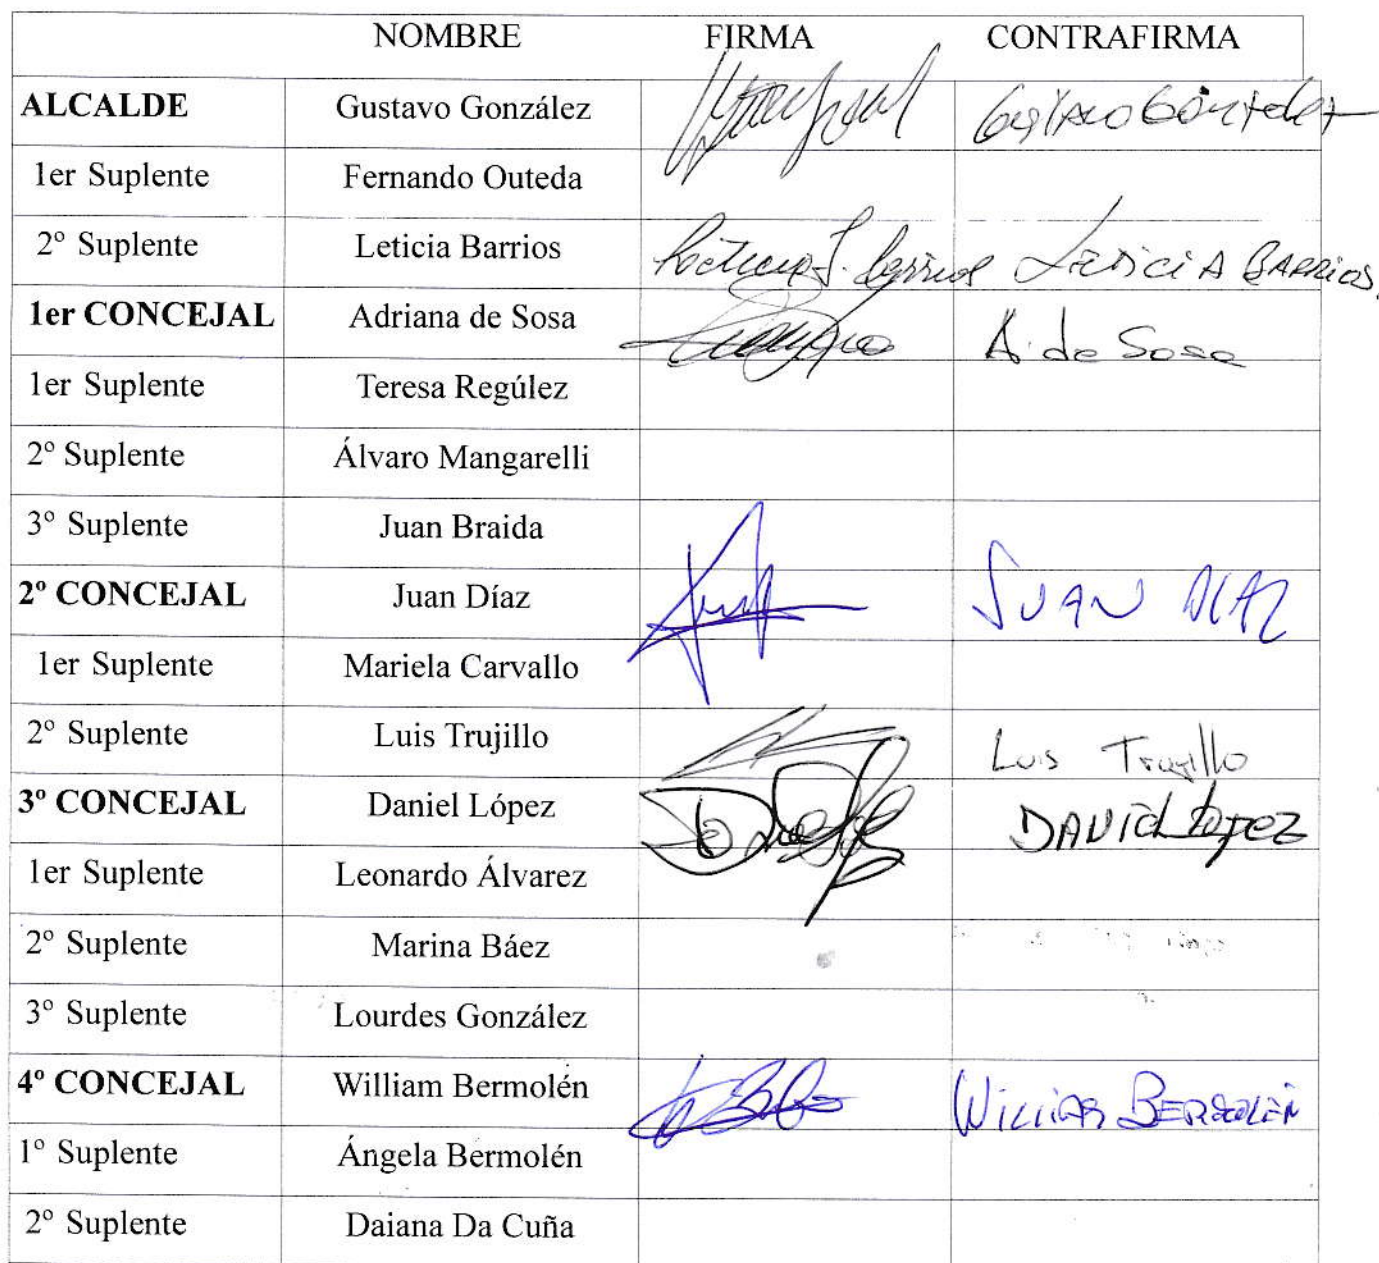 NOMBRE FIRMA CONTRAFIRMA
ALCALDE Gustavo González Gustavo González
1er Suplente Fernando Outeda
2º Suplente Leticia Barrios Leticia J. Barrios LETICIA BARRIOS.
1er CONCEJAL Adriana de Sosa A. de Sosa
1er Suplente Teresa Regúlez
2º Suplente Álvaro Mangarelli
3º Suplente Juan Braida
2º CONCEJAL Juan Díaz JUAN DIAZ
1er Suplente Mariela Carvallo
2º Suplente Luis Trujillo Luis Trujillo
3º CONCEJAL Daniel López DANIEL López
1er Suplente Leonardo Álvarez
2º Suplente Marina Báez
3º Suplente Lourdes González
4º CONCEJAL William Bermolén WILLIAM BERMOLÉN
1º Suplente Ángela Bermolén
2º Suplente Daiana Da Cuña